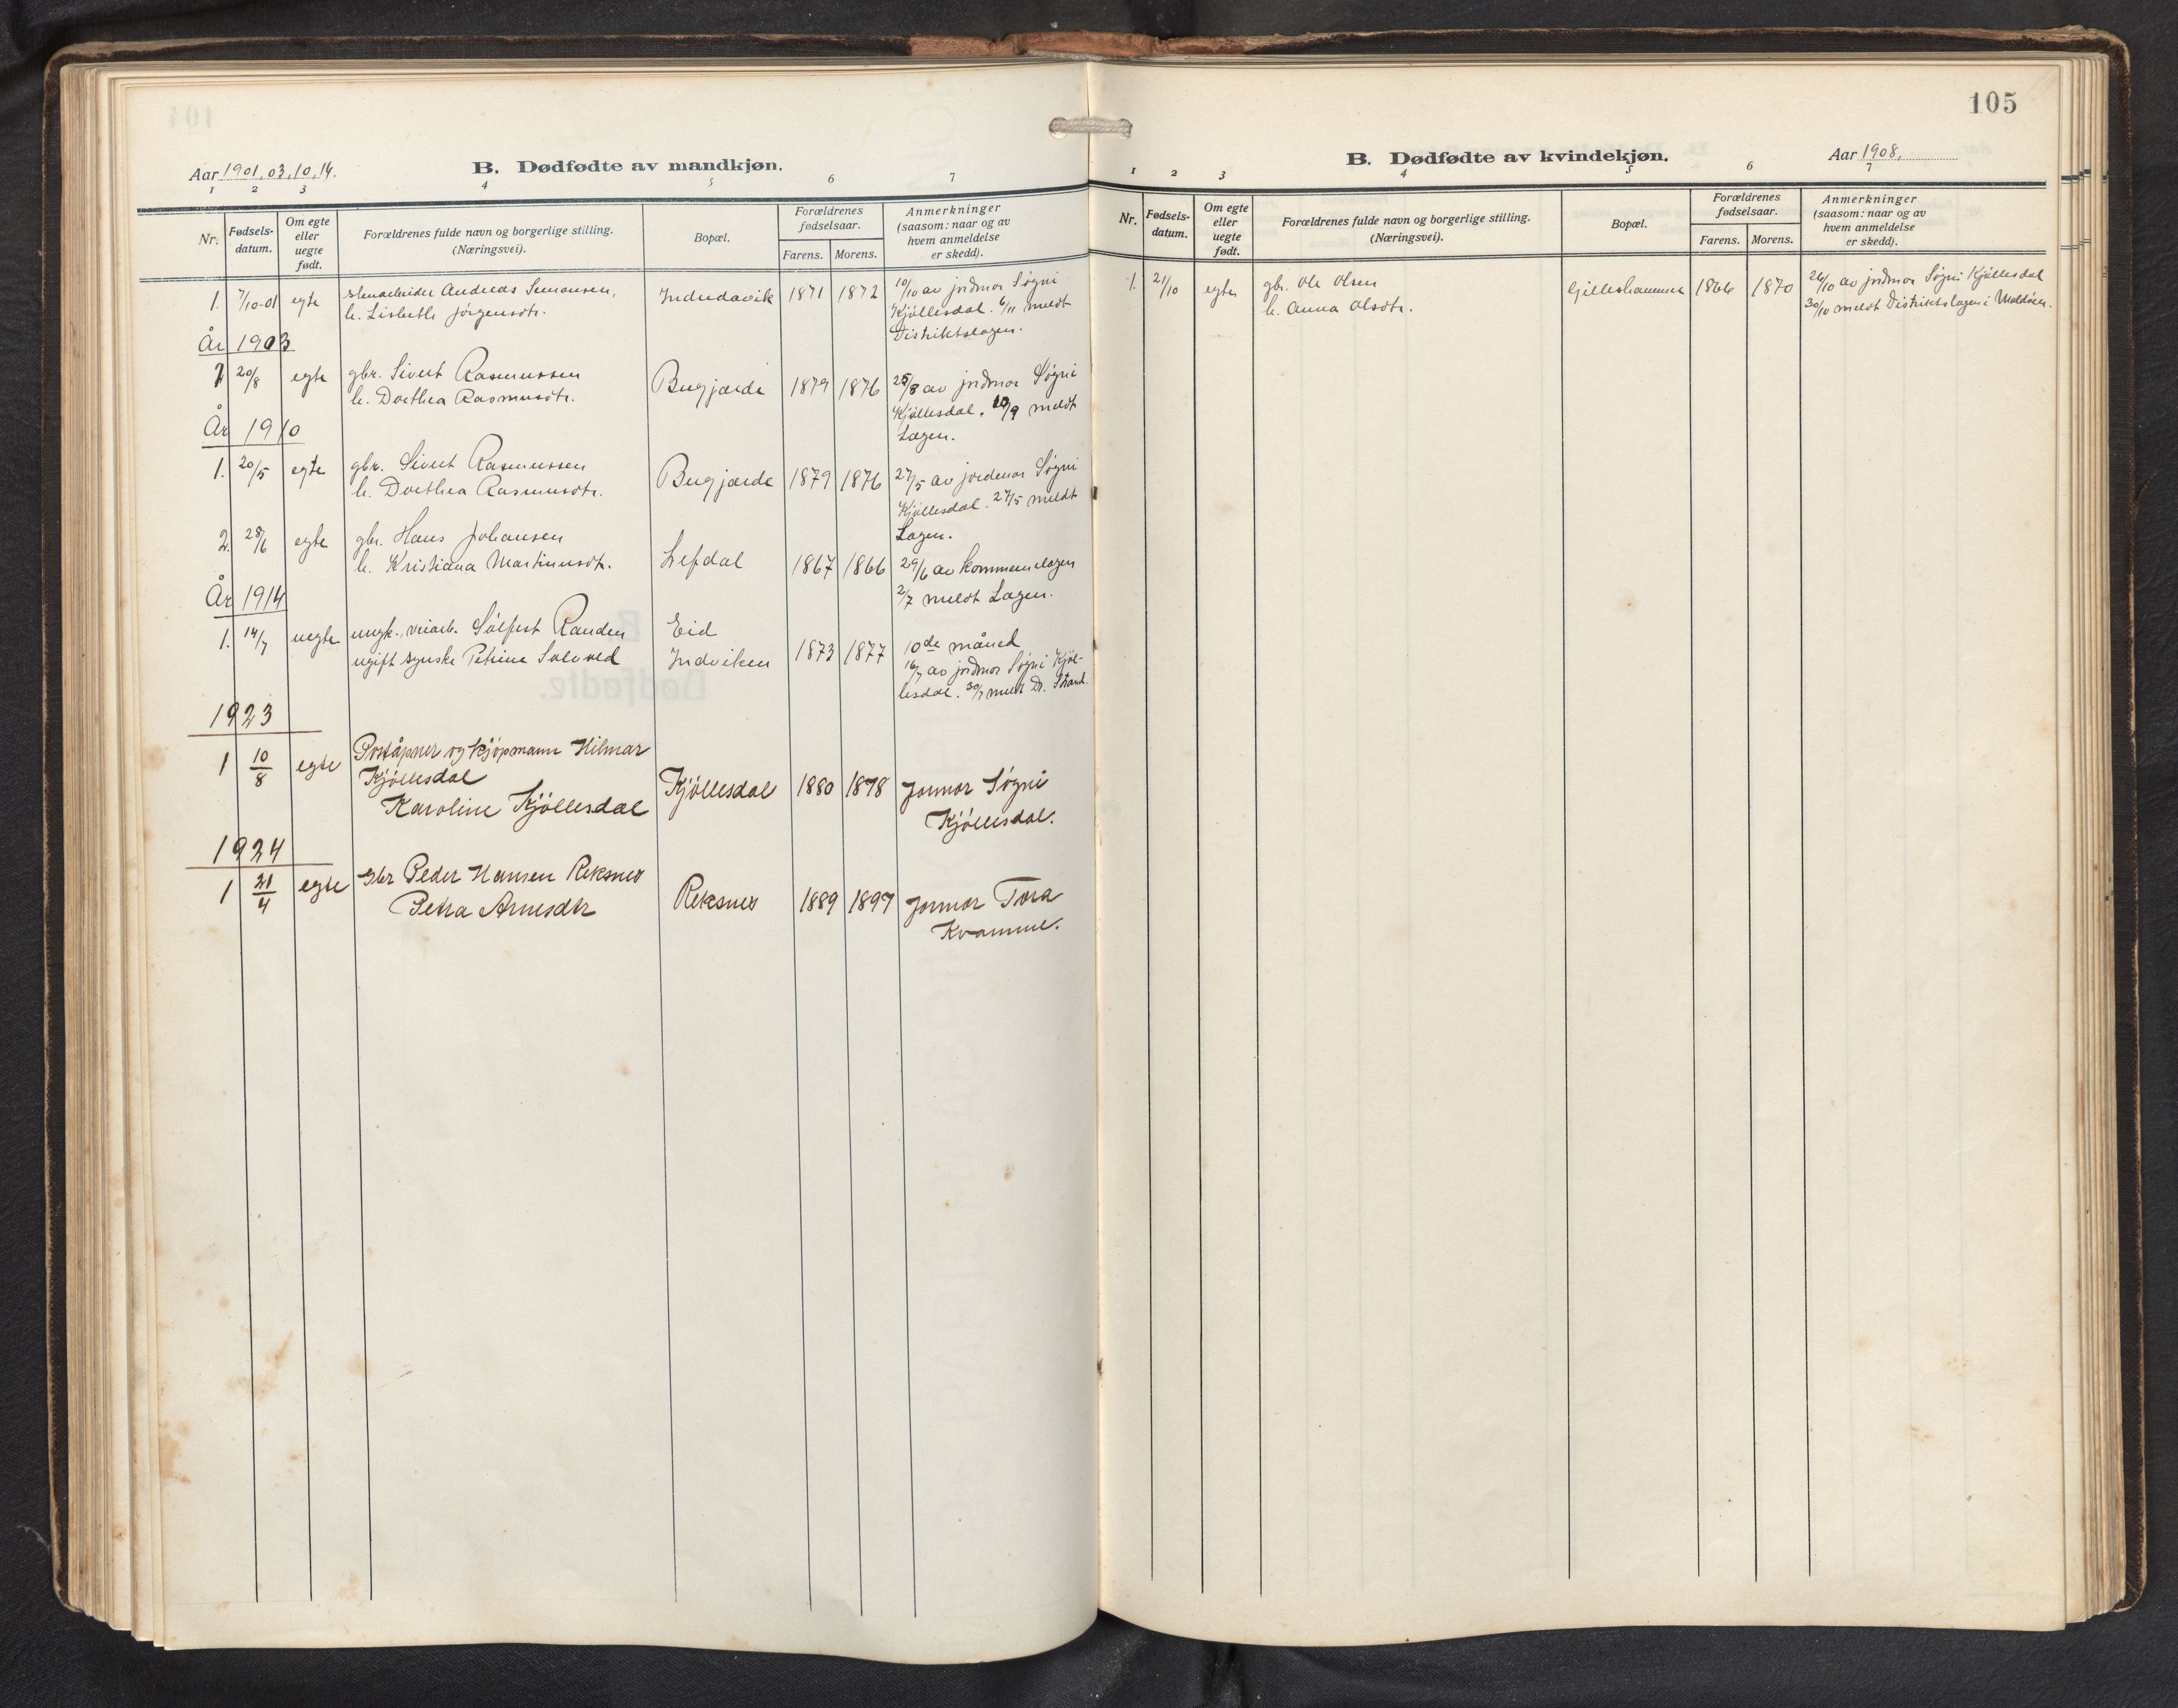 Aar 1901, 03, 10, 14.
B. Dødfødte av mandkjøn.
1 2 3 4 5 6 7
Nr.
Fødsels-
datum.
Om egte
eller
uegte
født.
Forældrenes fulde navn og borgerlige stilling.
(Næringsvei).
Bopæl.
Forældrenes
fødselsaar.
Farens. Morens.
Anmerkninger
(saasom: naar og av
hvem anmeldelse
er skedd).
1. 7/10-01 egte stenarbeider Andreas Simonsen, Indredavik 1871 1872 10/10 av jordmor Søgni
h. Lisbeth Jörgensdtr. Kjöllesdal. 6/11 meldt
Distriktslægen.
År 1903
1 20/8 egte gbr. Sivert Rasmussen Bugjærde 1879 1876 25/8 av jordmor Søgni
h. Dorthea Rasmusdtr. Kjöllesdal. 10/9 meldt
Lægen.
År 1910
1. 20/5 egte gbr. Sivert Rasmussen Bugjærde 1879 1876 27/5 av jordmor Søgni
h. Dorthea Rasmusdtr. Kjöllesdal. 27/5 meldt
Lægen.
2. 28/6 egte gbr. Hans Johansen Lefdal 1867 1866 29/6 av kommunelægen
h. Kristiana Martinusdtr. 2/7 meldt Lægen.
År 1914
1. 14/7 uegte ungk., veiarb. Sölfest Randen Eid 1873 1877 10de måned
ugift syerske Petrine Solvold Indviken 16/7 av jordmor Søgni Kjöl-
lesdal. 30/7 meldt Dr. Strand.
1923
1 10/8 egte Poståpner og kjøpmann Hilmar
Kjöllesdal Kjöllesdal 1880 1878 Jormor Søgni
Karoline Kjöllesdal Kjöllesdal.
1924
1 21/4 egte Gbr Peder Hansen Reksnes Reksnes 1889 1897 Jormor Tora
Petra Arnesdtr Kvamme.
105
B. Dødfødte av kvindekjøn.
Aar 1908,
1 2 3 4 5 6 7
Nr.
Fødsels-
datum.
Om egte
eller
uegte
født.
Forældrenes fulde navn og borgerlige stilling.
(Næringsvei).
Bopæl.
Forældrenes
fødselsaar.
Farens. Morens.
Anmerkninger
(saasom: naar og av
hvem anmeldelse
er skedd).
1. 21/10 egte gbr. Ole Olsen Gilleshammer 1866 1870 26/10 av jordmor Søgni Kjöllesdal
h. Anna Olsdtr. 30/10 meldt Distriktslægen i Moldöen.